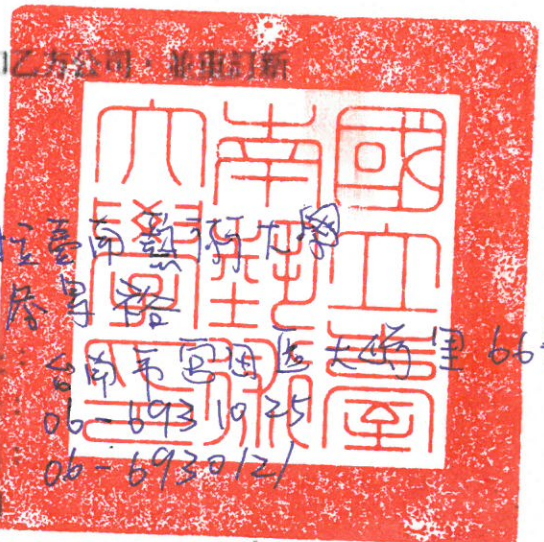 乙方公司，並重訂新
國立臺
南藝術
大學印
立臺南藝術大學
台南市官田區大崎里66
06-6931025
06-6930121